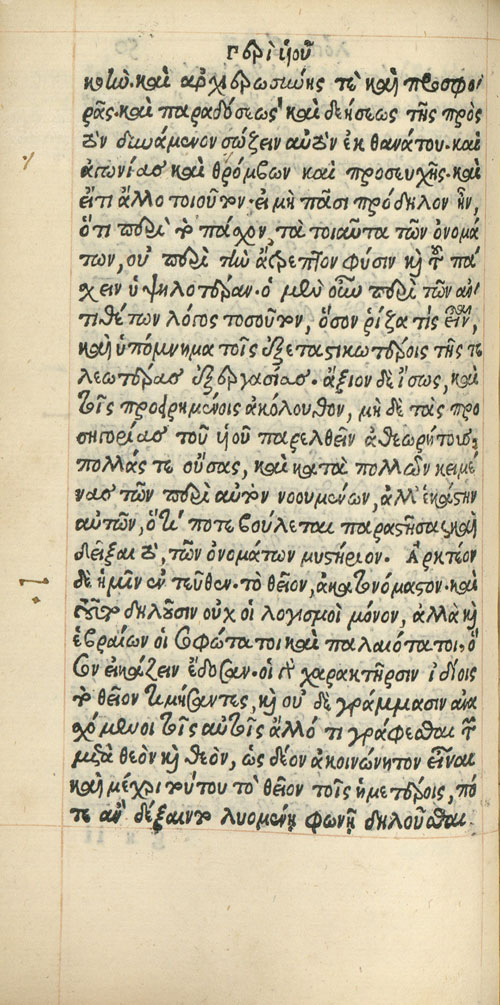 περὶ ὑιοῦ
κοιῶ· καὶ ἀρχιερωσύνης τε καὶ προσφο
ρᾶς· καὶ παραδόσεως· καὶ δεήσεως τῆς πρὸς
τὸν δυνάμενον σώζειν αὐτὸν ἐκ θανάτου· καὶ
ἀγωνίας καὶ θρόμβων καὶ προσευχῆς· καὶ
εἴτι ἄλλο τοιοῦτον· εἰ μὴ πᾶσι πρόδηλον ἦν,
ὅτι περὶ τὸ πάσχον, τὰ τοιαῦτα τῶν ὀνομά
των, οὐ περὶ τὴν ἄτρεπτον φύσιν κὶ τοῦ πά
χειν ὑψηλοτέραν· ὁ μὲν οὖν περὶ τῶν ἀν
τιθέτων λόγος τοσοῦτον, ὅσον ῥίζα τὶς εἶναι,
καὶ ὑπόμνημα τοῖς ἐξεταστικωτέροις τῆς τε
λεωτέρας ἐξεργασίας· ἄξιον δὲ ἴσως, καὶ
τοῖς προειρημένοις ἀκόλουθον, μὴ δὲ τὰς προ
σηγορίας τοῦ ὑιοῦ παρελθεῖν ἀθεωρήτους,
πολλάς τε οὔσας, καὶ κατὰ πολλῶν κειμέ
νας τῶν περὶ αὐτὸν νοουμένων, ἀλλ' ἑκάστην
αὐτῶν, ὅ τί ποτε βούλεται παραστῆσαι, καὶ
δεῖξαι τὸ, τῶν ὀνομάτων μυστήριον. Ἀρκτέον
δὲ ἡμῖν ἐντεῦθεν· τὸ θεῖον, ἀκατονόμαστον· καὶ
τοῦτο δηλοῦσιν οὐχ οἱ λογισμοὶ μόνον, ἀλλὰ κὶ
ἑβραίων οἱ σοφώτατοι καὶ παλαιότατοι, ὅ
σον εἰκάζειν ἔδοσαν· οἱ γὰρ χαρακτῆρσιν ἰδίοις
τὸ θεῖον τιμήσαντες, κὶ οὐ δὲ γράμμασιν ἀνα
χόμενοι τοῖς αὐτοῖς ἄλλό τι γράφεσθαι τῶν
μετὰ θεὸν κὶ θεὸν, ὡς δέον ἀκοινώνητον εἶναι
καὶ μέχρι τούτου τὸ θεῖον τοῖς ἡμετέροις, πό
τε ἂν δέξαιντο λυομένῃ φωνῇ δηλοῦσθαι